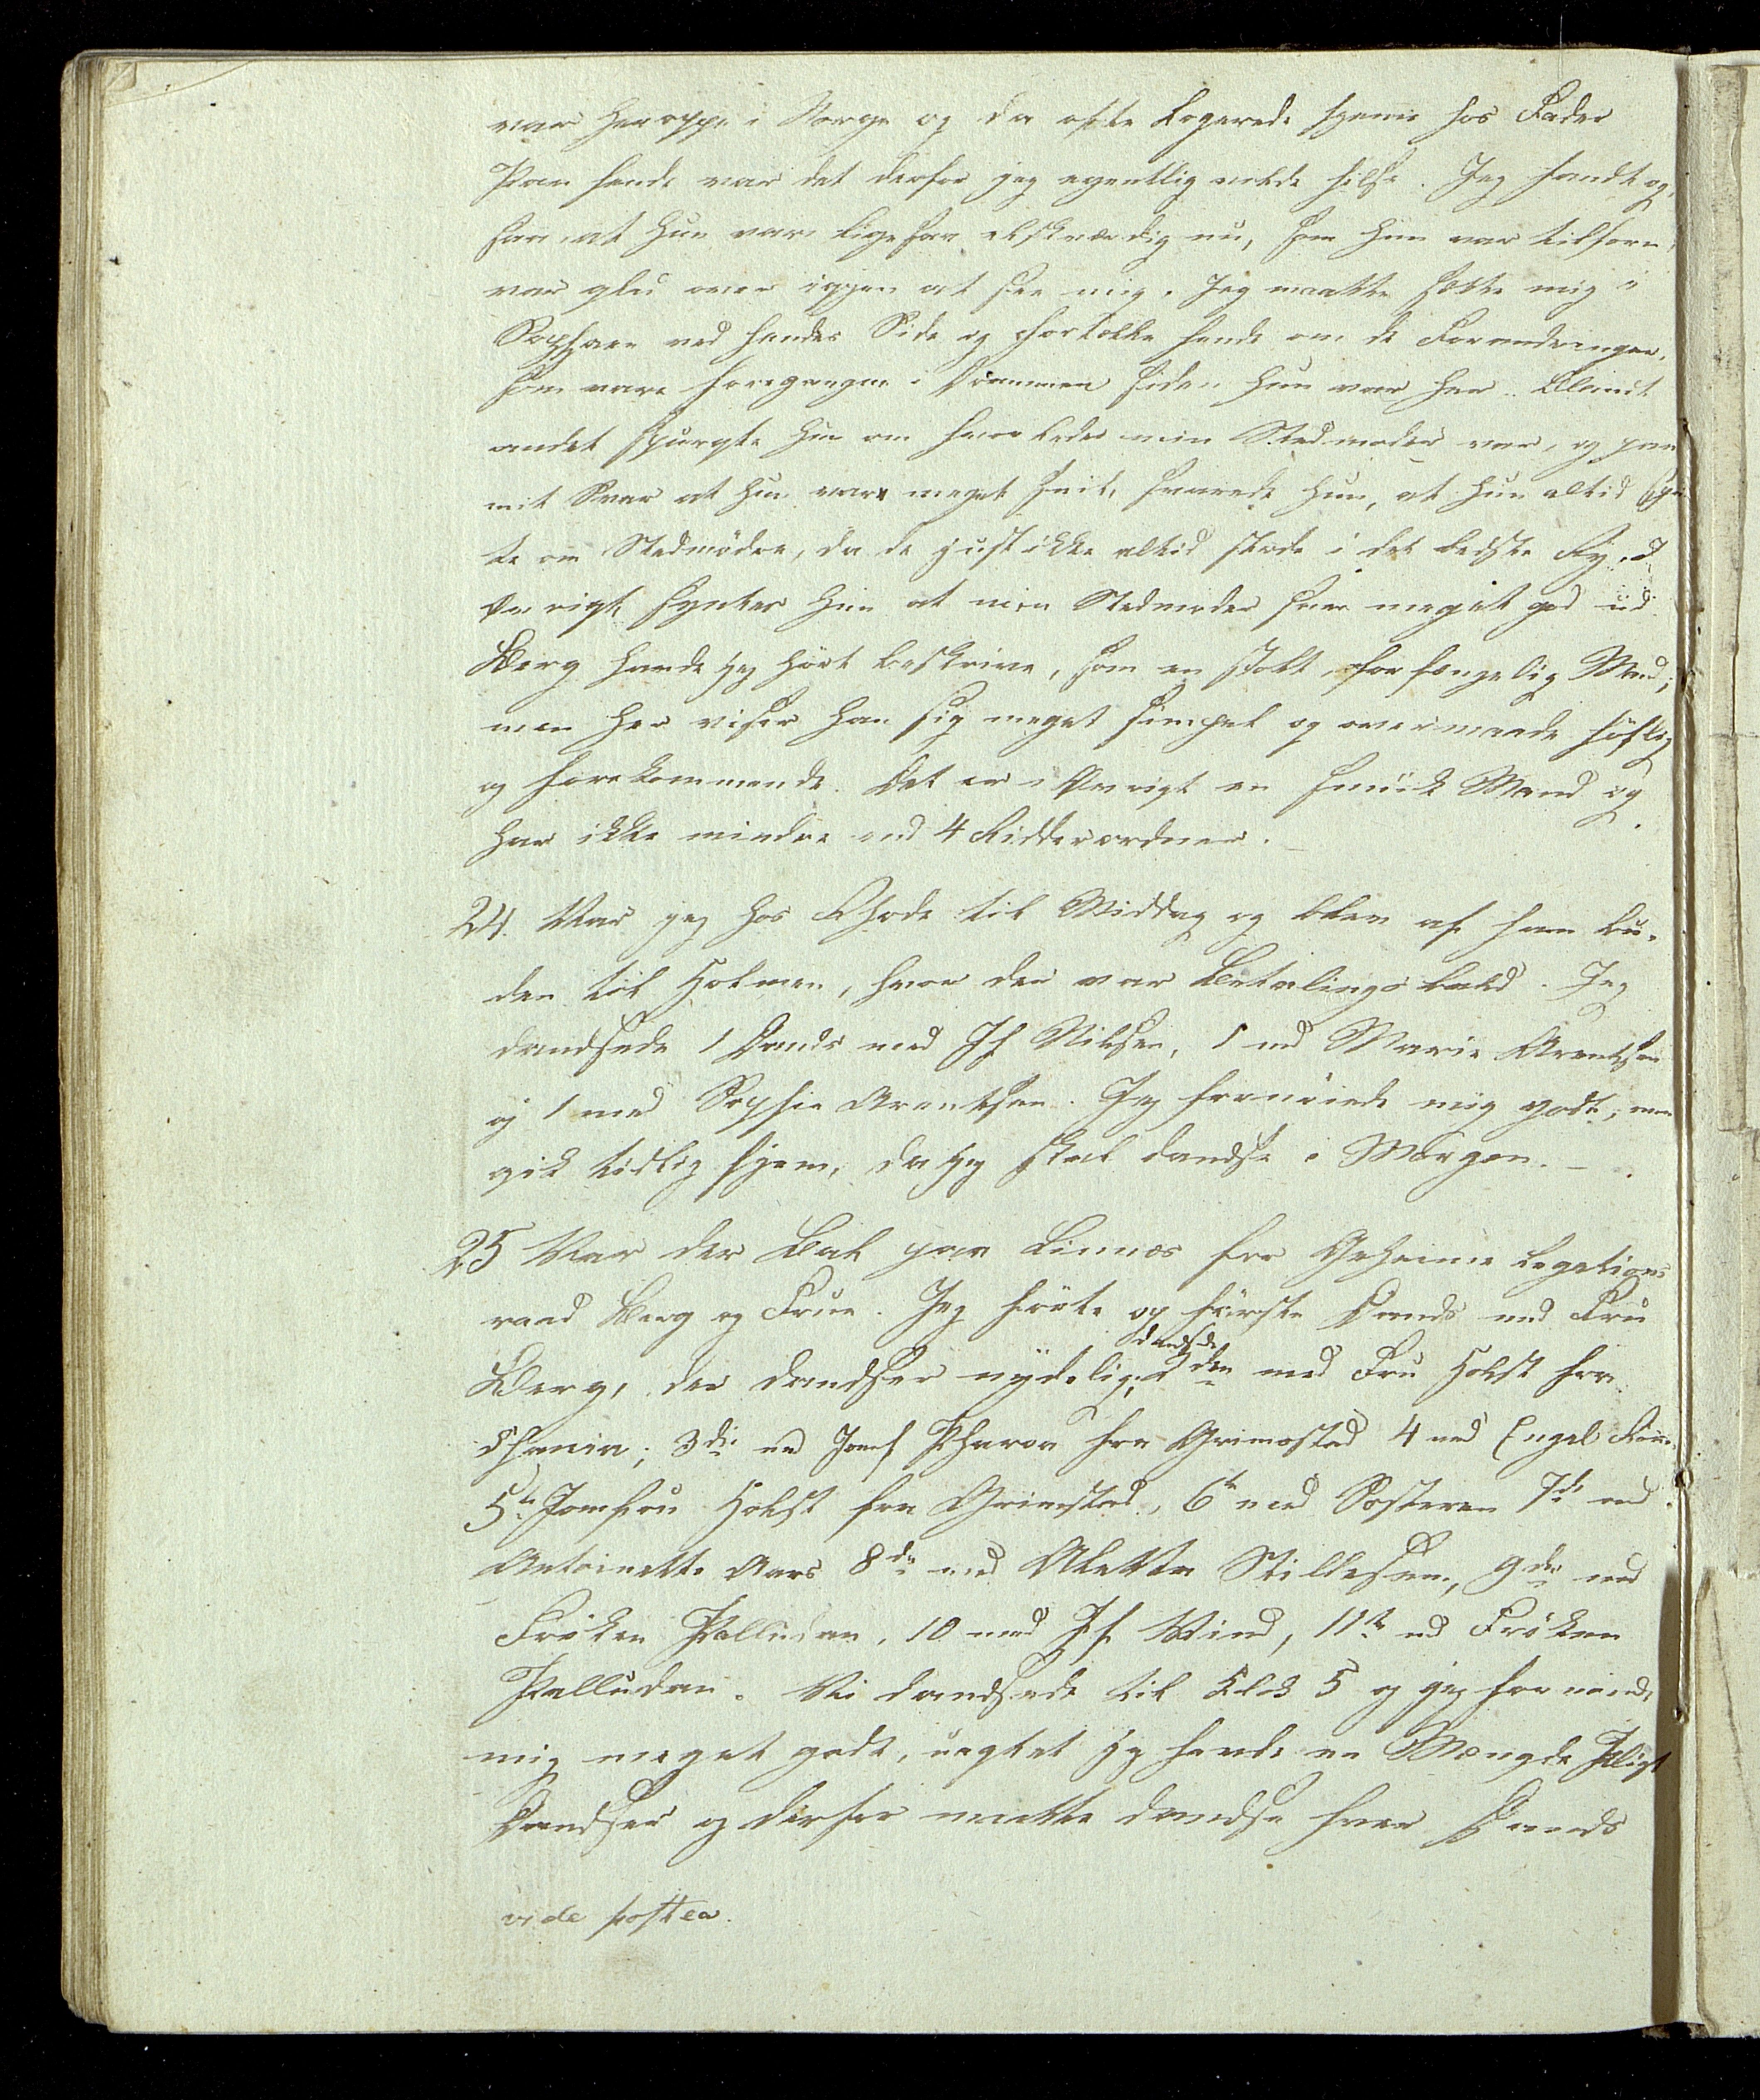 var heroppe i Norge og da ofte logerede hjeme hos Fader
Paa hende var det derfor jeg egentlig vilde hilse. Jeg fandt og,
saa, at hun var ligesaa elskværdig nu, som hun var tilforn,
var glad over igjen at see mig. Jeg maatte sætte mig i
Sophaen ved hendes Side og fortælle hende om de Forandringer,
som vare foregangne i Drammen siden hun var her. Blandt
andet spurgte hun om hvorledes min Stedmoder var, og paa
mit Svar at hun var meget snil, svarede hun, at hun altid
te om Stedmødre, da de just ikke altid stode i det bedste Ry. I
Øvrigt syntes hun at min Stedmoder saae meget god ud
Berg havde jeg hørt beskrive, som en stolt, forfængelig Mand;
men her viser han sig meget simpel og overmaade høflig
og forekommende. Det er i Øvrigt en smuk Mand og
har ikke mindre end 4 Ridderordner. –
24. Var jeg hos Rhode til Middag og blev af ham bu-
den til Holmen, hvor der var Betalingsbald. Jeg
dandsede 1 Dands med Jf Nilsen, 1 med Marie Arentsen
og 1 med Sophie Arentsen. Jeg fornøiede mig godt; men
gik tidlig hjem, da jeg skal dandse i Morgen. –
25 Var der Bal paa Linnes for Geheime Legations
raad Berg og Frue. Jeg førte op første Dands med Fru
Berg, der dandser nydelig; dandsede 2den med Fru Holst fra
3die med Jomf fra Grimstad 4 med Engel
5te Jomfru Holst fra Grimstad, 6te med Søsteren 7de med
Antoinette Aars 8de med Aletta Stillesen, 9de med
Frøken Palludan, 10 med Jf Wind, 11te med Frøken
Palludan. Vi dandsede til Klok 5 og jeg fornøiede
mig meget godt, uagtet jeg havde en Mængde Pligt
Dandser og derfor maatte dandse hver Dands
vide postea.